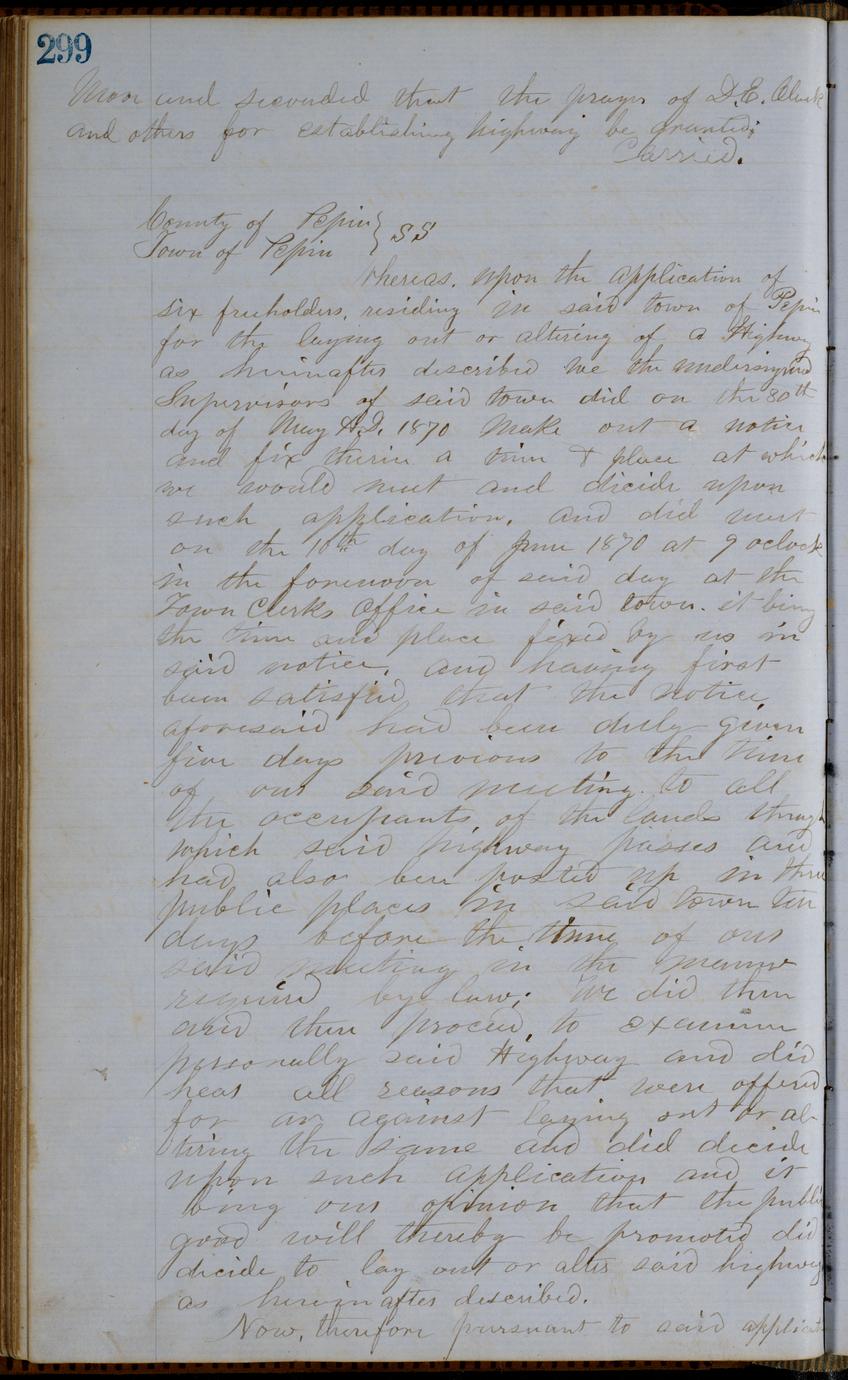 299
and seconded that the prayer of D.E. Clark
and others for establishing highway be granted;
Carried.
County of Pepin } SS
Town of Pepin
Whereas, upon the application of
six freeholders, residing in said town of Pepin
for the laying out or altering of a Highway
as hereinafter described we the undersigned
Supervisors of said town did on the 30th
day of May A.D. 1870 Make out a notice
and fix therein a time & place at which
we would meet and decide upon
such application, and did meet
on the 10th day of June 1870 at 9 oclock
in the forenoon of said day at the
Town Clerks Office in said town. it being
the time and place fixed by us in
said notice, and having first
been satisfied that the notice
aforesaid had been duly given
five days previous to the time
of our said meeting to all
the occupants of the lands through
which said highway passes and
had also been posted up in three
public places in said town ten
days before the time of our
said meeting in the manner
required by law; We did then
and there proceed, to examine
personally said Highway and did
hear all reasons that were offered
for an against laying out or al-
tering the same and did decide
upon such application and it
being our opinion that the public
good will thereby be promoted did
decide to lay out or alter said highway
as hereinafter described.
Now, therefore pursuant to said applicat